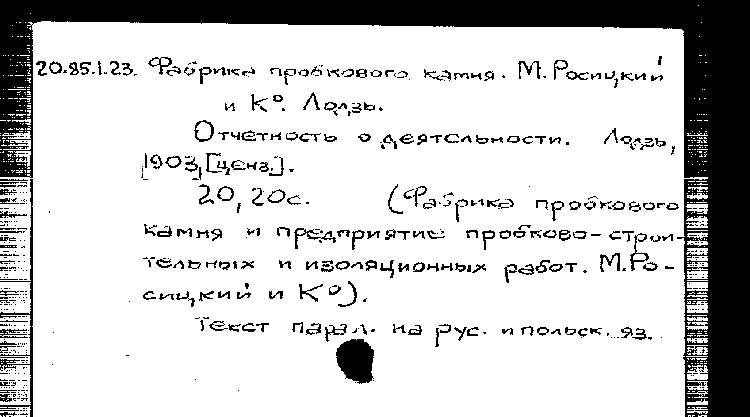 20.85.1.23. Фабрика пробкового камня. М. Росицкий
и К°. Лодзь.
Отчетность о деятельности. Лодзь,
1903, [ценз].
20, 20с. (Фабрика пробкового
камня и предприятие пробково-строи-
тельных и изоляционных работ. М. Ро-
сицкий и К°).
Текст парал. на рус. и польск. яз.